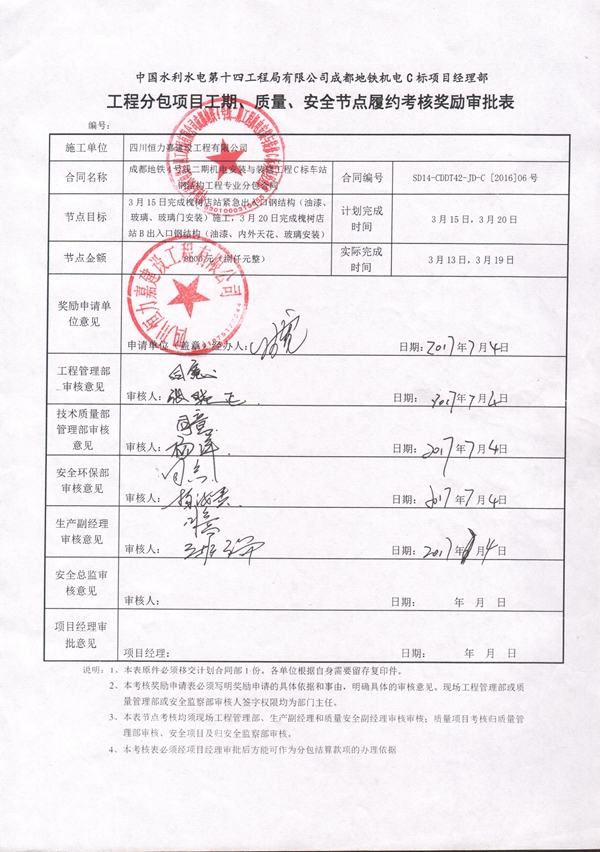 中国水利水电第十四工程局有限公司成都地铁机电C标项目经理部
工程分包项目工期、质量、安全节点履约考核奖励审批表
编号：
施工单位
四川恒力嘉建设工程有限公司
合同名称
成都地铁4号线二期机电安装与装修工程C标车站
钢结构工程专业分包合同
合同编号
SD14-CDDT42-JD-C [2016]06号
节点目标
3月15日完成槐树店站紧急出入口钢结构（油漆、
玻璃、玻璃门安装）施工，3月20日完成槐树店
站B出入口钢结构（油漆、内外天花、玻璃安装）
计划完成
时间
3月15日，3月20日
节点金额
8000元（捌仟元整）
实际完成
时间
3月13日，3月19日
奖励申请单
位意见
四川恒力嘉建设工程有限公司
申请单位（盖章）经办人：
日期：2017年7月4日
工程管理部
审核意见
同意
审核人：
日期：2017年7月4日
技术质量部
管理部审核
意见
同意
审核人：
日期：2017年7月4日
安全环保部
审核意见
审核人：
日期：2017年7月4日
生产副经理
审核意见
审核人：
日期：2017年7月4日
安全总监审
核意见
审核人：
日期： 年 月 日
项目经理审
批意见
项目经理：
日期： 年 月 日
说明：1、本表原件必须移交计划合同部1份，各单位根据自身需要留存复印件。
2、本考核奖励申请表必须写明奖励申请的具体依据和事由，明确具体的审核意见。现场工程管理部或质
量管理部或安全监察部审核人签字权限均为部门主任。
3、本表节点考核均须现场工程管理部、生产副经理和质量安全副经理审核审核；质量项目考核归质量管
理部审核、安全项目及归安全监察部审核。
4、本考核表必须经项目经理审批后方能可作为分包结算款项的办理依据